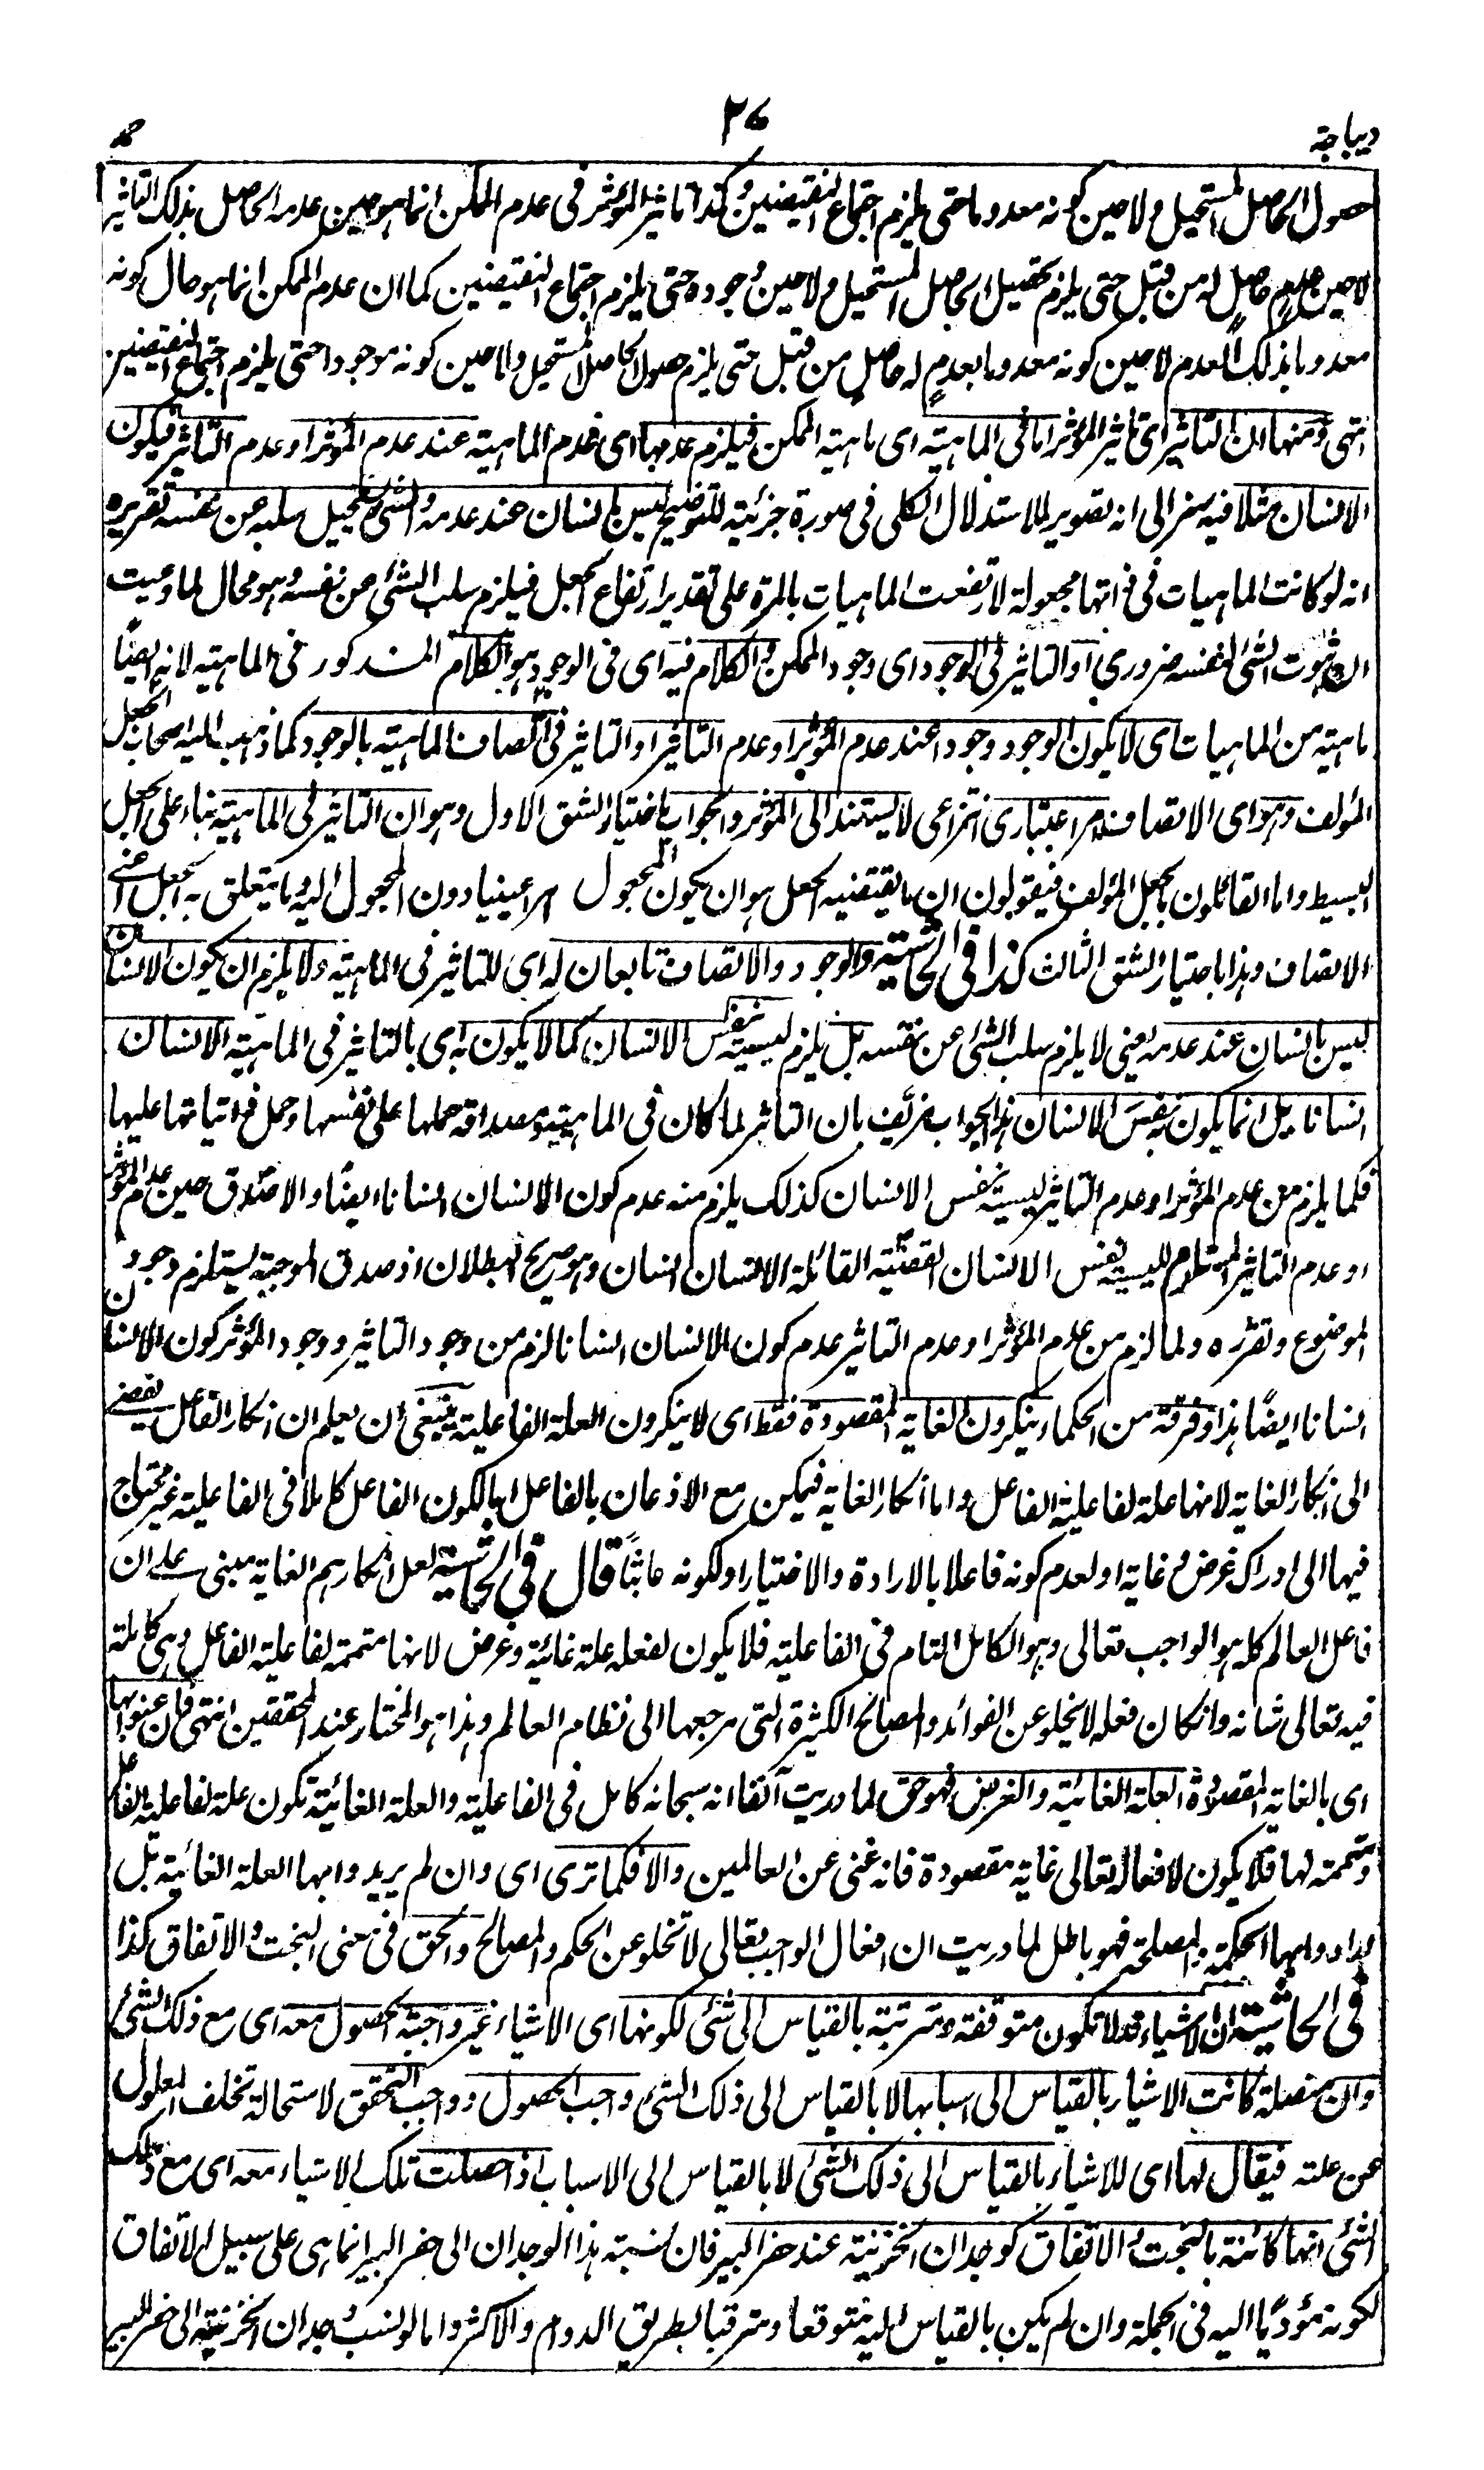 ديباجة
٢٦
حصول الحاصل المستحيل ولا حين كونه معدوما حتى يلزم اجتماع النقيضين وكذا تاثير المؤثر فى عدم الممكن انما هو حين عدمه الحاصل بذلك التاثير
لا حين عدم حاصل له من قبل حتى يلزم تحصيل الحاصل المستحيل ولا حين وجوده حتى يلزم اجتماع النقيضين كما ان عدم الممكن انما هو حال كونه
معدوما بذلك العدم لا حين كونه معدوما بعدم له حاصل من قبل حتى يلزم حصول الحاصل المستحيل ولا حين كونه موجودا حتى يلزم اجتماع النقيضين
انتهى ومنها ان التاثير اى تاثير المؤثر اما فى الماهية اى ماهية الممكن فيلزم عدمها اى عدم الماهية عند عدم المؤثر او عدم التاثير فيكون
الانسان مثلا فيه رمز الى انه تصوير للاستدلال الكلى فى صورة جزئية للتوضيح ليس بانسان عند عدمه والشئ يستحيل سلبه عن نفسه تقريره
انه لو كانت الماهيات فى ذاتها مجعولة لارتفعت الماهيات بالمرة على تقدير ارتفاع الجعل فيلزم سلب الشئ عن نفسه وهو محال لما وعيت
ان ثبوت الشئ لنفسه ضرورى او التاثير فى الوجود اى وجود الممكن والكلام فيه اى فى الوجود هو الكلام المذكور فى الماهية لانه ايضًا
ماهية من الماهيات اى لا يكون الوجود وجودا عند عدم المؤثر او عدم التاثير او التاثير فى اتصاف الماهية بالوجود كما ذهب اليه اصحاب الجعل
المؤلف وهو اى الاتصاف امر اعتبارى انتزاعى لا يستند الى المؤثر والجواب باختيار الشق الاول وهو ان التاثير فى الماهية بناء على الجعل
البسيط واما القائلون بالجعل المؤلف فيقولون ان ما يقتضيه الجعل هو ان يكون المجعول امرا عينيا دون المجعول اليه وما يتعلق به الجعل اعنى
الاتصاف وهذا باختيار الشق الثالث كذا فى الحاشية والوجود والاتصاف تابعان له اى للتاثير فى الماهية ولا يلزم ان يكون الانسان
ليس بانسان عند عدمه اعنى لا يلزم سلب الشئ عن نفسه بل يلزم ليسية نفس الانسان كما لا يكون به اى بالتاثير فى الماهية الانسان
انسانا بل انما يكون به نفس الانسان هذا الجواب مزيف بان التاثير لما كان فى الماهية ومصداقه حملها على نفسها وحمل ذاتياتها عليها
فكما يلزم من عدم المؤثر او عدم التاثير ليسية نفس الانسان كذلك يلزم منه عدم كون الانسان انسانا ايضًا والا صدق حين عدم المؤثر
او عدم التاثير المستلزم لليسية نفس الانسان القضية القائلة الانسان انسان وهو صريح البطلان اذ صدق الموجبة يستلزم وجود
الموضوع وتقرره ولما لزم من عدم المؤثر او عدم التاثير عدم كون الانسان انسانا لزم من وجود التاثير ووجود المؤثر كون الانسان
انسانا ايضًا هذا وفرقة من الحكماء ينكرون الغاية المقصودة فقط اى لا ينكرون العلة الفاعلية ينبغى ان يعلم ان انكار الفاعل يفضى
الى انكار الغاية لانها علة لفاعلية الفاعل واما انكار الغاية فيمكن مع الاذعان بالفاعل اما لكون الفاعل كاملا فى الفاعلية غير محتاج
فيها الى ادراك غرض وغاية او لعدم كونه فاعلا بالارادة والاختيار او لكونه عابثًا قال فى الحاشية لعل انكارهم الغاية مبنى على ان
فاعل العالم كله هو الواجب تعالى وهو الكامل التام فى الفاعلية فلا يكون لفعله علة غائية وغرض لانها متممة لفاعلية الفاعل وهى كاملة
فيه تعالى شانه وان كان فعله لا يخلو عن الفوائد والمصالح الكثيرة التى مرجعها الى نظام العالم وهذا هو المختار عند المحققين انتهى فان عنوا بها
اى بالغاية المقصودة العلة الغائية والغرض فهو حق لما دريت آنفا انه سبحانه كامل فى الفاعلية والعلة الغائية تكون علة لفاعلية الفاعل
ومتممة لها فلا يكون لافعاله تعالى غاية مقصودة فانه غنى عن العالمين والا فكما ترى اى وان لم يريدوا بها العلة الغائية بل
ارادوا بها الحكمة والمصلحة فهو باطل لما دريت ان افعال الواجب تعالى لا تخلو عن الحكم والمصالح والحق فى معنى البخت والاتفاق كذا
فى الحاشية ان الاشياء قد لا تكون متوقفة ومترتبة بالقياس الى شئ لكونها اى الاشياء غير واجبة الحصول معه اى مع ذلك الشئ
وان حصلت كانت الاشياء بالقياس الى اسبابها لا بالقياس الى ذلك الشئ واجب الحصول وواجب التحقق لاستحالة تخلف المعلول
عن علته فيقال لها اى للاشياء بالقياس الى ذلك الشئ لا بالقياس الى الاسباب اذا حصلت تلك الاشياء معه اى مع ذلك
الشئ انها كائنة بالبخت والاتفاق كوجدان الخزينة عند حفر البير فان نسبة هذا الوجدان الى حفر البير انما هى على سبيل الاتفاق
لكونه مؤديًا اليه فى الجملة وان لم يكن بالقياس اليه متوقعا ومترقبا بطريق الدوام والاكثر واما لو نسب وجدان الخزينة الى حفر البير